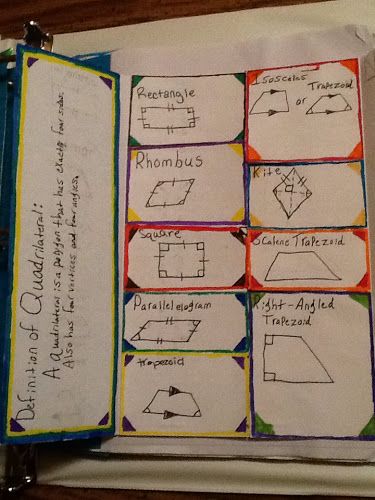 Definition of Quadrilateral:
A Quadrilateral is a polygon that has exactly four sides.
Also has four vertices and four angles.
Rectangle
Rhombus
Square
Parallelogram
trapezoid
Isosceles Trapezoid
or
Kite
Scalene Trapezoid
Right-Angled
Trapezoid